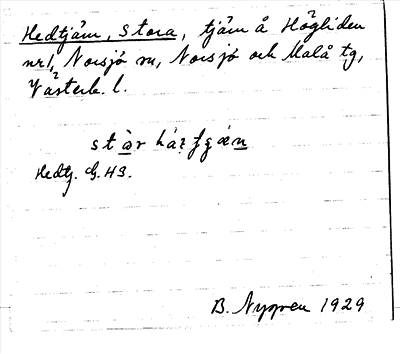 Hedtjärn, Stora, tjärn å Högliden
nr1, Norsjö sn, Norsjö och Malå tg,
Västerb. l.
Hedtj. G. 43.
B. Nygren 1929